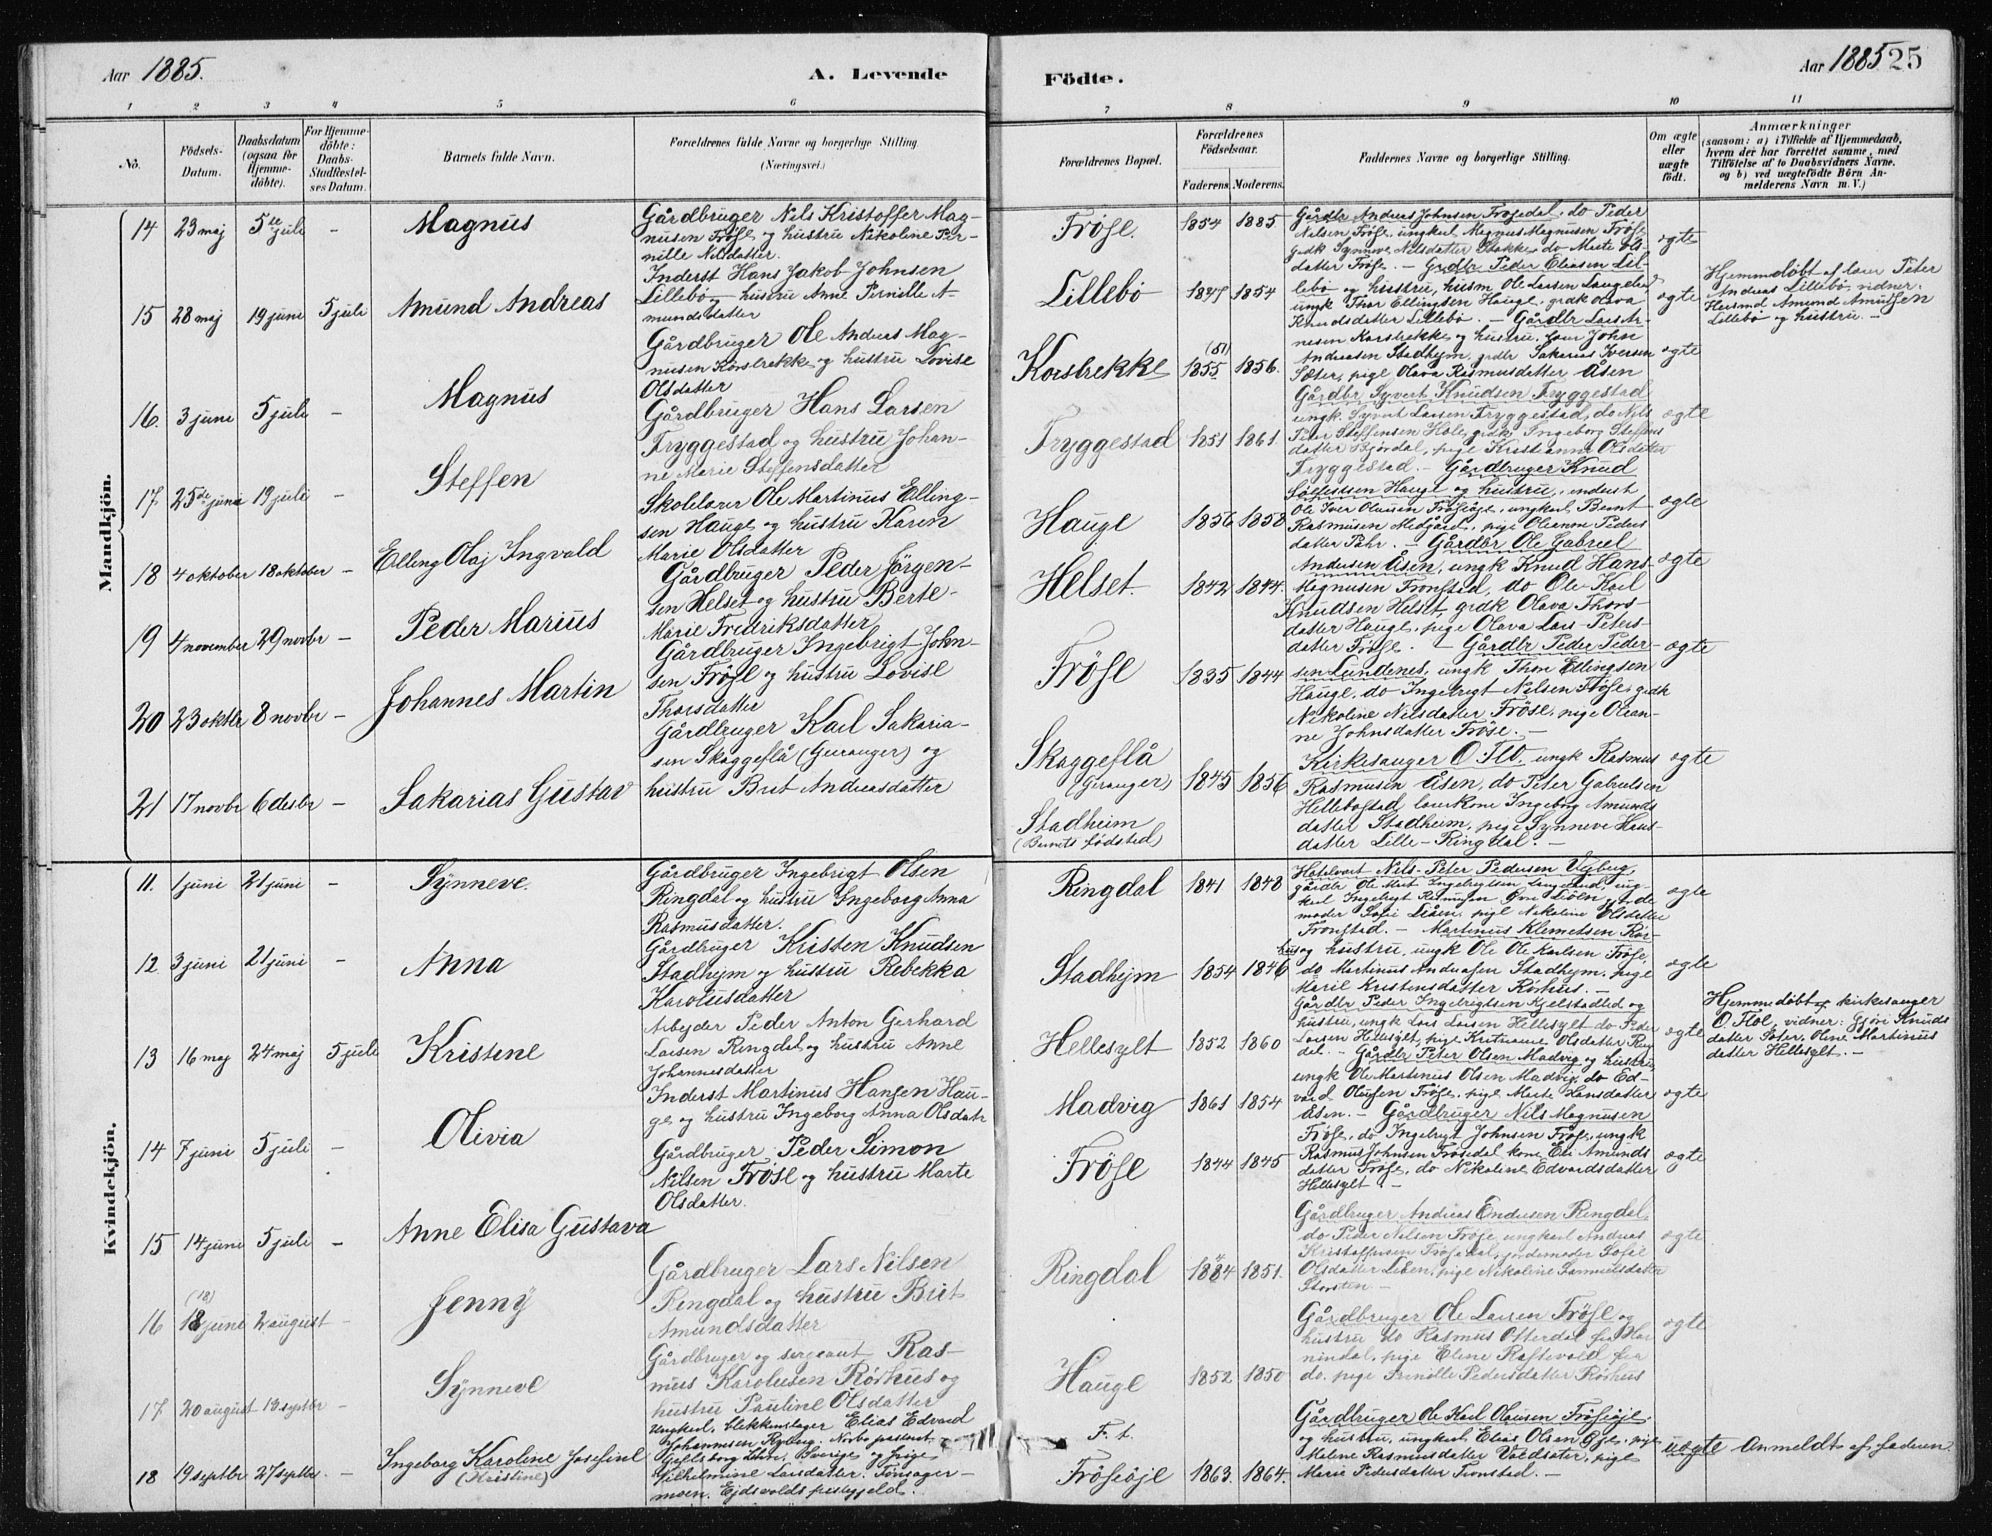 Aar 1885.
A. Levende
Födte.
Aar 1885
25
1 2 3 4 5 6 7 8 9 10 11
No.
Födsels-Datum.
Daabsdatum (ogsaa for Hjemmedöbte).
For Hjemmedöbte: Daabs-Stadfæstelses Datum.
Barnets fulde Navn.
Forældrenes fulde Navne og borgerlige Stilling (Næringsvei.)
Forældrenes Bopæl.
Forældrenes Födselsaar.
Faderens. Moderens.
Faddernes Navne og borgerlige Stilling.
Om ægte eller uægte födt.
Anmærkninger
(saasom: a) i Tilfælde af Hjemmedaab,
hvem der har forrettet samme, med
Tilföielse af to Daabsvidners Navne,
og b) ved uægtefödte Börn An-
melderens Navn m. V.)
Mandkjön.
14 23 maj 5te juli - Magnus
Gårdbruger Nils Kristoffer Mag-
nusen Fröse og hustru Nikoline Per-
nille Nilsdatter.
Fröse. 1854 1885.
Gårdbr Andreas Johnsen Frösedal, do Peder
Nilsen Fröse, ungkarl Magnus Magnusen Fröse
grdk Synneve Nilsdatter Stokke do Marte Ols-
datter Fröse. -
ægte
15 28 maj 19 juni 5 juli Amund Andreas
Inderst Hans Jakob Johnsen
Lillebö - hustru Anne Pernille A-
mundsdatter
Lillebö 1854
Grdbr Peder Eliasen Lil-
lebö og hustru, husm Ole Larsen
ungk Thor Ellingsen Hauge, grdk Olava
Knudsdatter Lillebö. -
ægte
Hjemmedöbt af lærer Peter
Andreas Lillebö, vidner:
Husmd Amund Amundsen
Lillebö og hustru. -
16. 3 juni 5 juli - Magnus
Gårdbruger Ole Andreas Mag-
nusen Korsbrekke og hustru Lovise
Olsdatter
Korsbrekke 1855 1856.
Gårdbr Lars Ar-
nesen Korsbrekke og hustru, lærer John
Andreasen Stadhejm, grdbr Sakarias Iversen
Sæter, pige Olava Rasmusdatter Åsen
ægte
17 25de juni 19 juli - Steffen
Gårdbruger Hans Larsen
Tryggestad og hustru Johan-
ne Marie Steffensdatter
Tryggestad 1851 1861.
Gårdbr Syvert Knudsen Tryggestad
ungk Syvert Larsen Tryggestad, do Nils
Peter Steffensen Hole, grdk Ingeborg Steffens
datter Bjørdal, pige Kristianne Olsdatter
Tryggestad. -
ægte
18 4 oktober 18 oktober - Elling Olaj Ingvald
Skolelærer Ole Martinus Elling-
sen Hauge og hustru Karen
Marie Olsdatter
Hauge 1856 1858
Gårdbruger Knud
Hauge og hustru, inderst
Ole Iver Olausen Frösiöje, ungkarl Bernt
Rasmusen Medgård, pige Oleanne Peders
datter -
ægte
19 4 november 29 novbr - Peder Marius
Gårdbruger Peder Jörgen-
sen Helset og hustru Berte-
Marie Fredriksdatter
Helset. 1842 1844.
Gårdbr Ole Gabriel
Andersen Åsen, ungk Knud Hans
Magnusen Tronstad, do Ole Karl
Knudsen Helset grdk Olava Thors-
datter Hauge, pige Olava Lars Peters-
datter Fröse. -
ægte
20 23 oktbr 8 novbr - Johannes Martin
Gårdbruger Ingebrigt John-
sen Fröse og hustru Lovise
Thorsdatter
Fröse 1835 1844
Gårdbr Peder Peder-
sen Lundenes, ungk Thor Ellingsen
Hauge, do Ingebrigt Nilsen Fröse, grdk
Nikoline Nilsdatter Fröse, pige Olean-
ne Johnsdatter Fröse. -
ægte
21 17 novbr 6 desbr - Sakarias Gustav
Gårdbruger Karl Sakaria-
sen Skaggeflå (Geiranger) og
hustru Brit Andreasdatter
Skaggeflå
(Geiranger)
Stadheim
(Barnets födsted)
1845 1856
Kirkesanger O. Flö. ungk Rasmus
Rasmusen Åsen, do Peter Gabrielsen
Hellebostad, lærerkone Ingeborg Amunds
datter Stadheim, pige Synneve Hans-
datter Lille-Ringdal. -
ægte
Kvindekjön.
11. 1 juni 21 juni - Synneve.
Gårdbruger Ingebrigt Olsen
Ringdal og hustru Ingeborg Anna
Rasmusdatter.
Ringdal 1841 1848
Hotelvert Nils Peter Pedersen
gårdbr Ole Ingebrigtsen ung-
karl Ingebrigt Rasmusen jorde
moder Sofie Liåen, pige Nikoline Olsdatter
Tronstad. -
ægte
12. 3 juni 21 juni - Anna
Gårdbruger Kristen Knudsen
Stadhejm og hustru Rebekka
Karolusdatter
Stadhejm 1854 1846
Martinus Klemetsen Rör-
hus og hustru, ungk Ole Ole Karlsen Fröse,
do Martinus Andreasen Stadhejm, pige
Marie Kristensdatter Rörhus. -
ægte
13 16 maj 24 maj 5 juli Kristine
Arbejder Peder Anton Gerhard
Larsen Ringdal og hustru Anne
Johannesdatter
Hellesylt 1852 1860
Gårdbr Peder Ingebrigtsen Kjelstadlid og
hustru, ungk Lars Larsen Hellesylt do Peder
Larsen Hellesylt, pige Kristianne Olsdatter Ring
dal. -
ægte
Hjemmedöbt af kirkesanger
O. Flöe, vidner: Gjöri Knuds
datter Sæter, Oline Martinus
datter Hellesylt. -
14 7 juni 5 juli - Olivia
Inderst Martinus Hansen Hau-
ge og hustru Ingeborg Anna Olsdatr
Madvig 1861 1854
Gårdbr Peter Olsen Madvig og hustru
ungk Ole Martinus Olsen Madvig, do Ed-
vard Olausen Fröse, pige Marte Hansdatter
Åsen. -
ægte
15 14 juni 5 juli - Anne Elisa Gustava
Gårdbruger Peder Simon
Nilsen Fröse og hustru Marte
Olsdatter.
Fröse 1844 1845
Gårdbruger Nils Magnusen
Fröse, do Ingebrigt Johnsen Fröse, ungk
Rasmus Johnsen Frösedal kone Eli Amunds
datter Fröse, do Nikoline Edvardsdatter
Hellesylt -
ægte
16 (18) 18 juni 2 august - Jenny
Gårdbruger Lars Nilsen
Ringdal og hustru Brit
Amundsdatter
Ringdal 1884 1851.
Gårdbruger Andreas Endresen Ringdal,
do Peder Nilsen Fröse, ungkarl Andreas
Kristoffersen Frösedal, jordemoder Sofie
Olsdatter Liåen, pige Nikoline Samuelsdatter
-
ægte
17 20 august 13 septbr - Synneve
Gårdbruger og sergeant Ras-
mus Karolusen Rörhus og
hustru Pauline Olsdatter
Hauge 1852 1850
Gårdbruger Ole Larsen Fröse og
hustru do Rasmus Otterdal fra Hor
nindal, pige Eline Raftevold fra
do. pige Pernille Pedersdatter Rörhus
ægte
18 19 septbr 27 septbr. - Ingeborg Karoline Josefine
(Kristine)
Ungkarl, blikkenslager Elias Edvard
Johannesen Ryberg, Norbo pastorat
Elfsborg Lehn, Sverige og pige
Vilhelmine Larsdatter Tönsager-
moen, Ejdsvolds prestegjeld.
F. t.
Frösiöje 1863. 1864.
Gårdbruger Ole Karl Olausen Frösiöje
og hustru, ungkarl Elias Olsen Öje, pige
Malene Rasmusdatter Valdsæter, pige
Marie Pedersdatter Tronstad. -
uægte
Anmeldt af faderen